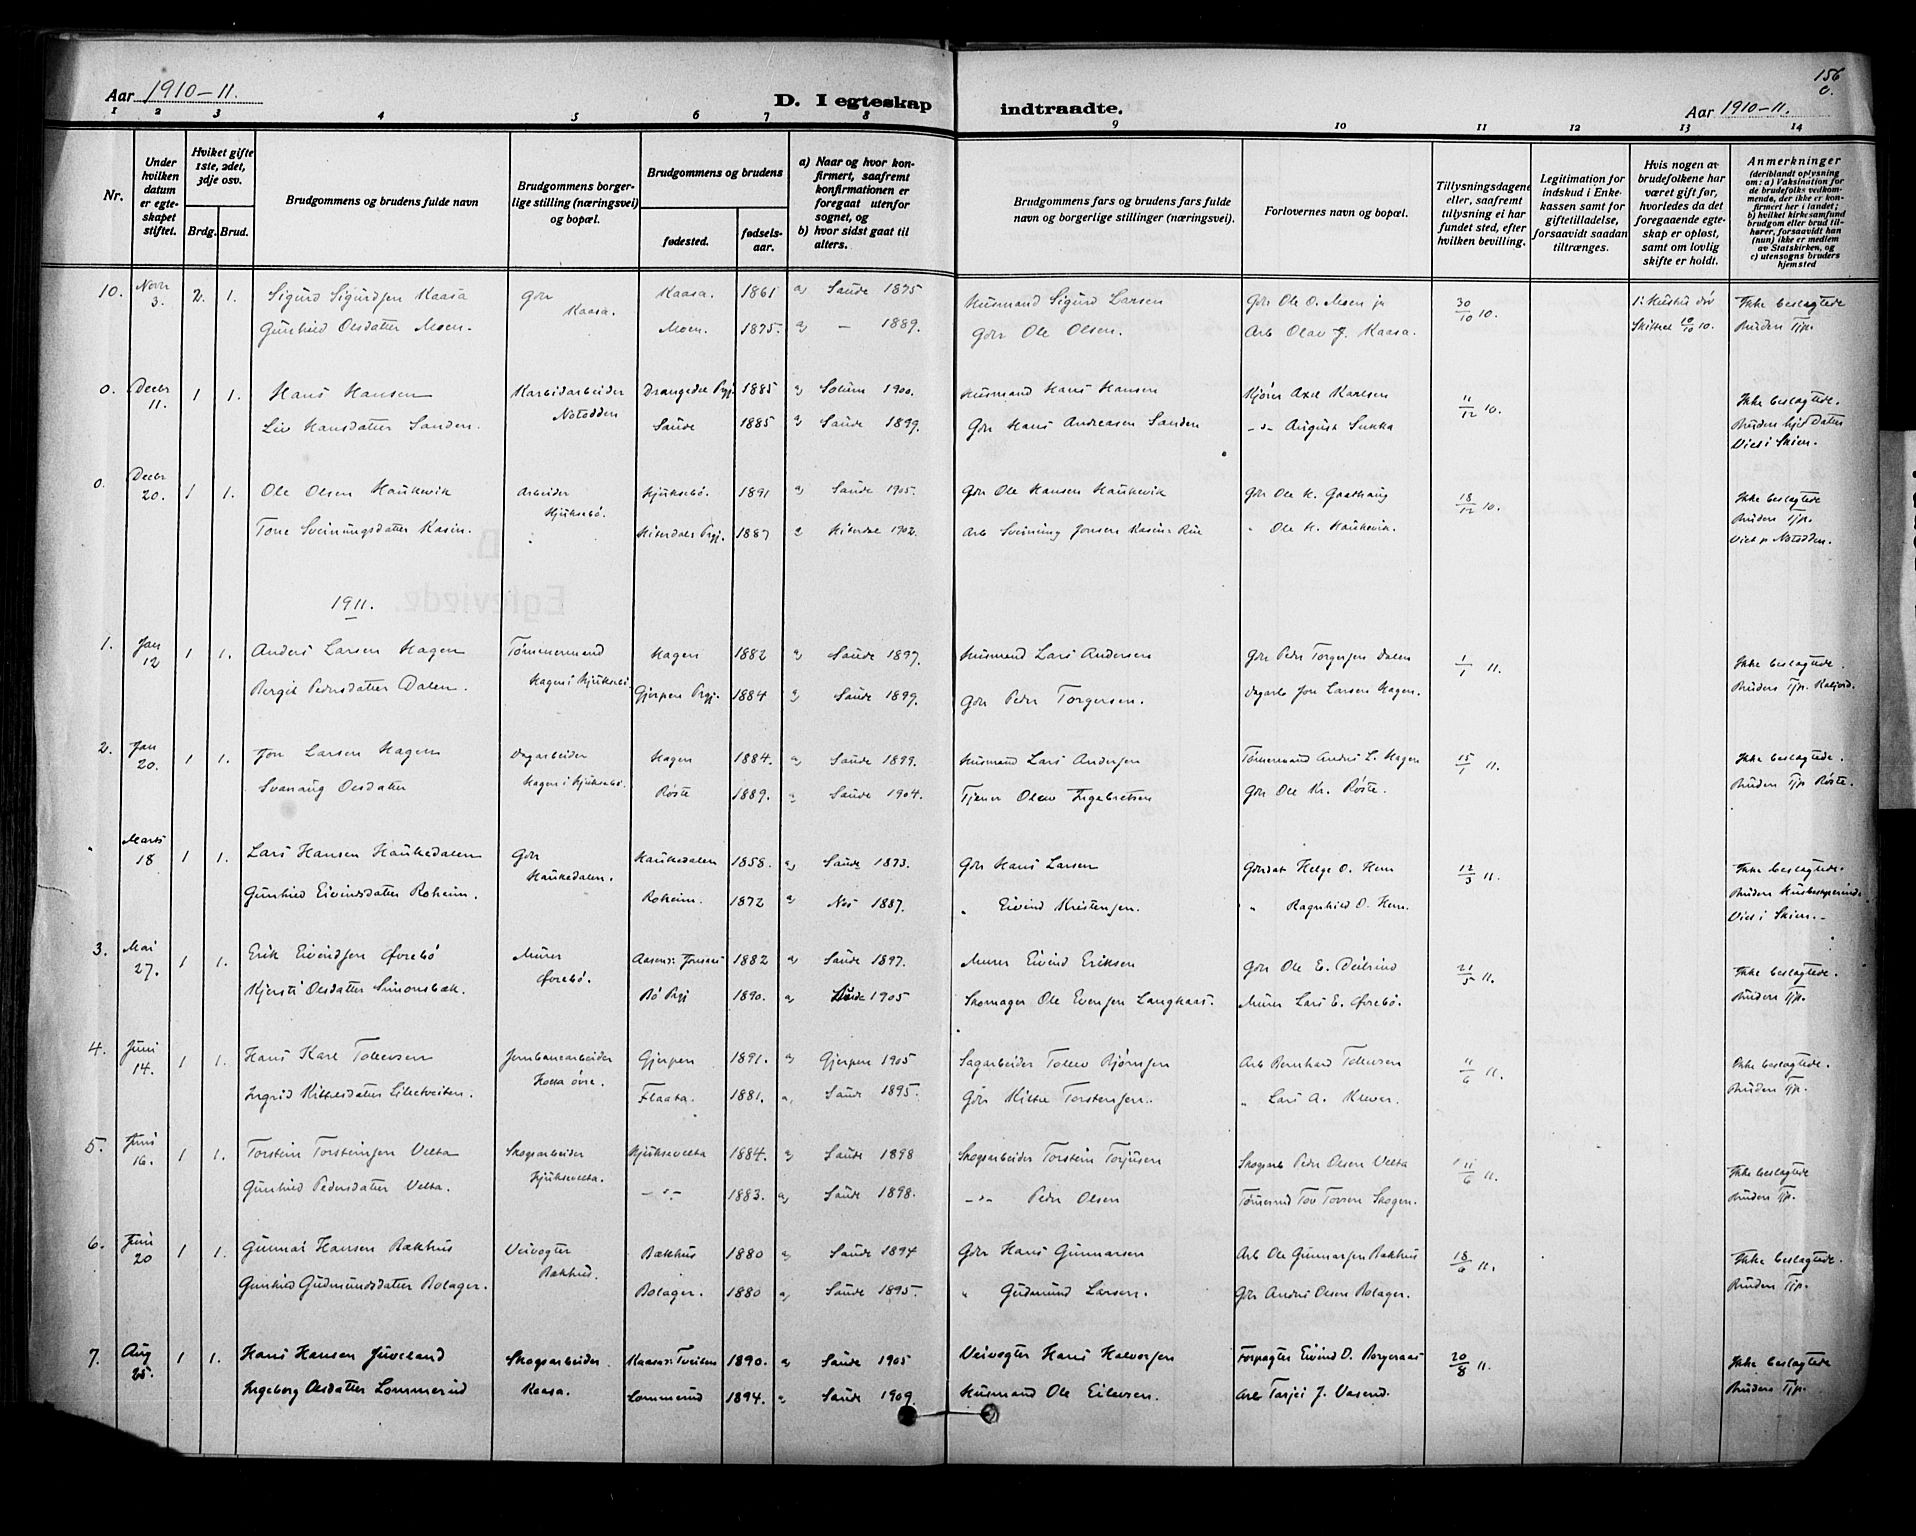 156
0.
Aar 1910-11.
D. I egteskap indtraadte.
Aar 1910-11.
1 2 3 4 5 6 7 8 9 10 11 12 13 14
Nr.
Under hvilken datum er egteskapet stiftet.
Hviket gifte 1ste, 2det, 3dje osv.
Brdg. Brud.
Brudgommens og brudens fulde navn
Brudgommens borgerlige stilling (næringsvei) og bopæl.
Brudgommens og brudens
fødested.
fødselsaar.
a) Naar og hvor konfirmert, saafremt konfirmationen er foregaat utenfor sognet, og
b) hvor sidst gaat til alters.
Brudgommens fars og brudens fars fulde navn og borgerlige stillinger (næringsvei).
Forlovernes navn og bopæl.
Tillysningsdagene eller, saafremt tillysning ei har fundet sted, efter hvilken bevilling.
Legitimation for indskud i Enkekassen samt for giftetilladelse, forsaavidt saadan tiltrænges.
Hvis nogen av brudefolkene har været gift før, hvorledes da det foregaaende egteskap er opløst, samt om lovlig skifte er holdt.
Anmerkninger (deriblandt oplysning om: a) Vaksination for de brudefolks vedkommende, der ikke er konfirmert her i landet; b) hvilket kirkesamfund brudgom eller brud tilhører, forsaavidt han (nun) ikke er medlem av Statskirken, og c) utensogns bruders hjemsted
10. Novr 3. 2. 1. Sigurd Sigurdsen Kaasa Gbr Kaasa. Kaasa. 1861 a) Saude 1875 Husmand Sigurd Larsen Gbr Ole O. Moen 30/10 10. 1: Hustru død Ikke beslægtede
Gunhild Olsdatter Moen. Moen. 1875. a) – 1889. Gbr Ole Olsen. Arb Olav J. Kaasa. Skiftet 10/10 10. Brudens Tjp.
0. Decbr 11. 1 1. Hans Hansen Karbidarbeider Notodden Drangedal Prgj 1885 a) Solum 1900. Husmand Hans Hansen Kjører Axel Karlsen 11/12 10. Ikke beslægtede.
Liv Hansdatter Sanden. Saude 1885 a) Saude 1899. Gbr Hans Andreasen Sanden -"- August Brudens hjst
Viet i Skien.
0. Decbr 20. 1 1. Ole Olsen Haukevik Arbeider Hjuksebø. Hjuksebø. 1891 a) Saude 1905. Gbr Ole Hansen Haukevik Gbr Ole H. Graathaug 18/12 10. Ikke beslægtede
Tone Sveinungsdatter Kasin. Hiterdals Prgj. 1887 a Hiterdal 1902. Arb Sveinung Jonsen Kasin " Ole H. Haukevik. Brudens Tjp.
Viet p Notodden.
1911.
1. Jan 12 1 1. Anders Larsen Hagen Tømmermand Hagen i Hjuksebø Hagen 1882 a) Saude 1897. Husmand Lars Andersen Gbr Peder Torgersen Dalen 1/1 11. Ikke beslægtede.
Bergit Pedersdatter Dalen. Gjerpen Prgj. 1884 a) Saude 1899. Gbr Peder Torgersen. Dagarb Jon Larsen Hagen. Brudens Tjp.
2. Jan 20. 1 1. Jon Larsen Hagen Dagarbeider Hagen i Hjuksebø. Hagen 1884. a) Saude 1899. Husmand Lars Andersen Tømmermand Anders L. Hagen 15/1 11. Ikke beslægtede.
Svanaug Olsdatter Røste 1889. a Saude 1904. Tjener Olav Ingebretsen Gbr Ole Kr. Røste. Brudens Tjp Røste.
" Marts 18 1 1. Lars Hansen Haukedalen Gbr Haukedalen. Haukedalen 1858. a) Saude 1873. Gbr Hans Larsen Gbrdat Helge O. Hem 12/3 11. Ikke beslægtede.
Gunhild Eivindsdatter Roheim. Roheim. 1872 a Nes 1887. " Eivind Kristensen. " Ragnhild O. Hem. Bruden Husbestyrerinde
Viet i Skien.
3. Mai 27. 1 1. Erik Eivindsen Øvrebø Murer Øvrebø. 1882 a) Saude 1897. Murer Eivind Eriksen Gbr Ole E. 21/5 11. Ikke beslægtede.
Kjersti Olsdatter Simonsbæk. Bø Prgj 1890. a) 1905 Skomager Ole Evensen Langkaas. Murer Lars E. Øvrebø. Brudens Tjp.
4. Juni 14. 1 1. Hans Karl Tollevsen Jernbanearbeider øvre. Gjerpen 1891. a) Gjerpen 1905 Sagarbeider Tollev Bjørnsen Arb Bernhard Tollevsen 11/6 11. Ikke beslægtede.
Ingrid Kittelsdatter Litletveiten. Flaata. 1881. a, Saude 1895. Gbr Kittel Torstensen. " Lars A. Kleven. Brudens Tjp.
5. Juni 16. 1 1. Torstein Torsteinsen Velta Skogsarbeider Hjuksevelta. Hjuksevelta 1884. a) Saude 1898 Skogsarbeider Torstein Torjusen Skogsarb Peder Olsen Velta 11/6 11. Ikke beslægtede
Gunhild Pedersdatter Velta. -"- 1883. a) Saude 1898. -"- Peder Olsen Tømmermd Tov Tovsen Skogen. Brudens Tjp.
6. Juni 20 1 1. Gunnar Hansen Bakhus Veivogter Bakhus. Bakhus 1880 a) Saude 1894 Gbr Hans Gunnarsen Arb Ole Gunnarsen Bakhus 18/6 11. Ikke beslægtede.
Gunhild Gudmundsdatter Bolager. Bolager. 1880 a) Saude 1895. " Gudmund Larsen. Gbr Anders Olsen Bolager. Brudens Tjp.
7. Aug 25. 1 1. Hans Hansen Juveland Skogsarbeider. Kaasa. Kaasas Tveiten 1890. a) Saude 1905 Veivogter Hans Halvorsen Forpagter Eivind O. Borgeraas 20/8 11. Ikke beslægtede
Ingeborg Olsdatter Lommerud Lommerud 1894. a Saude 1909. Husmand Ole Eilevsen. Arb Tarjei J. Vasend. Brudens Tjp.